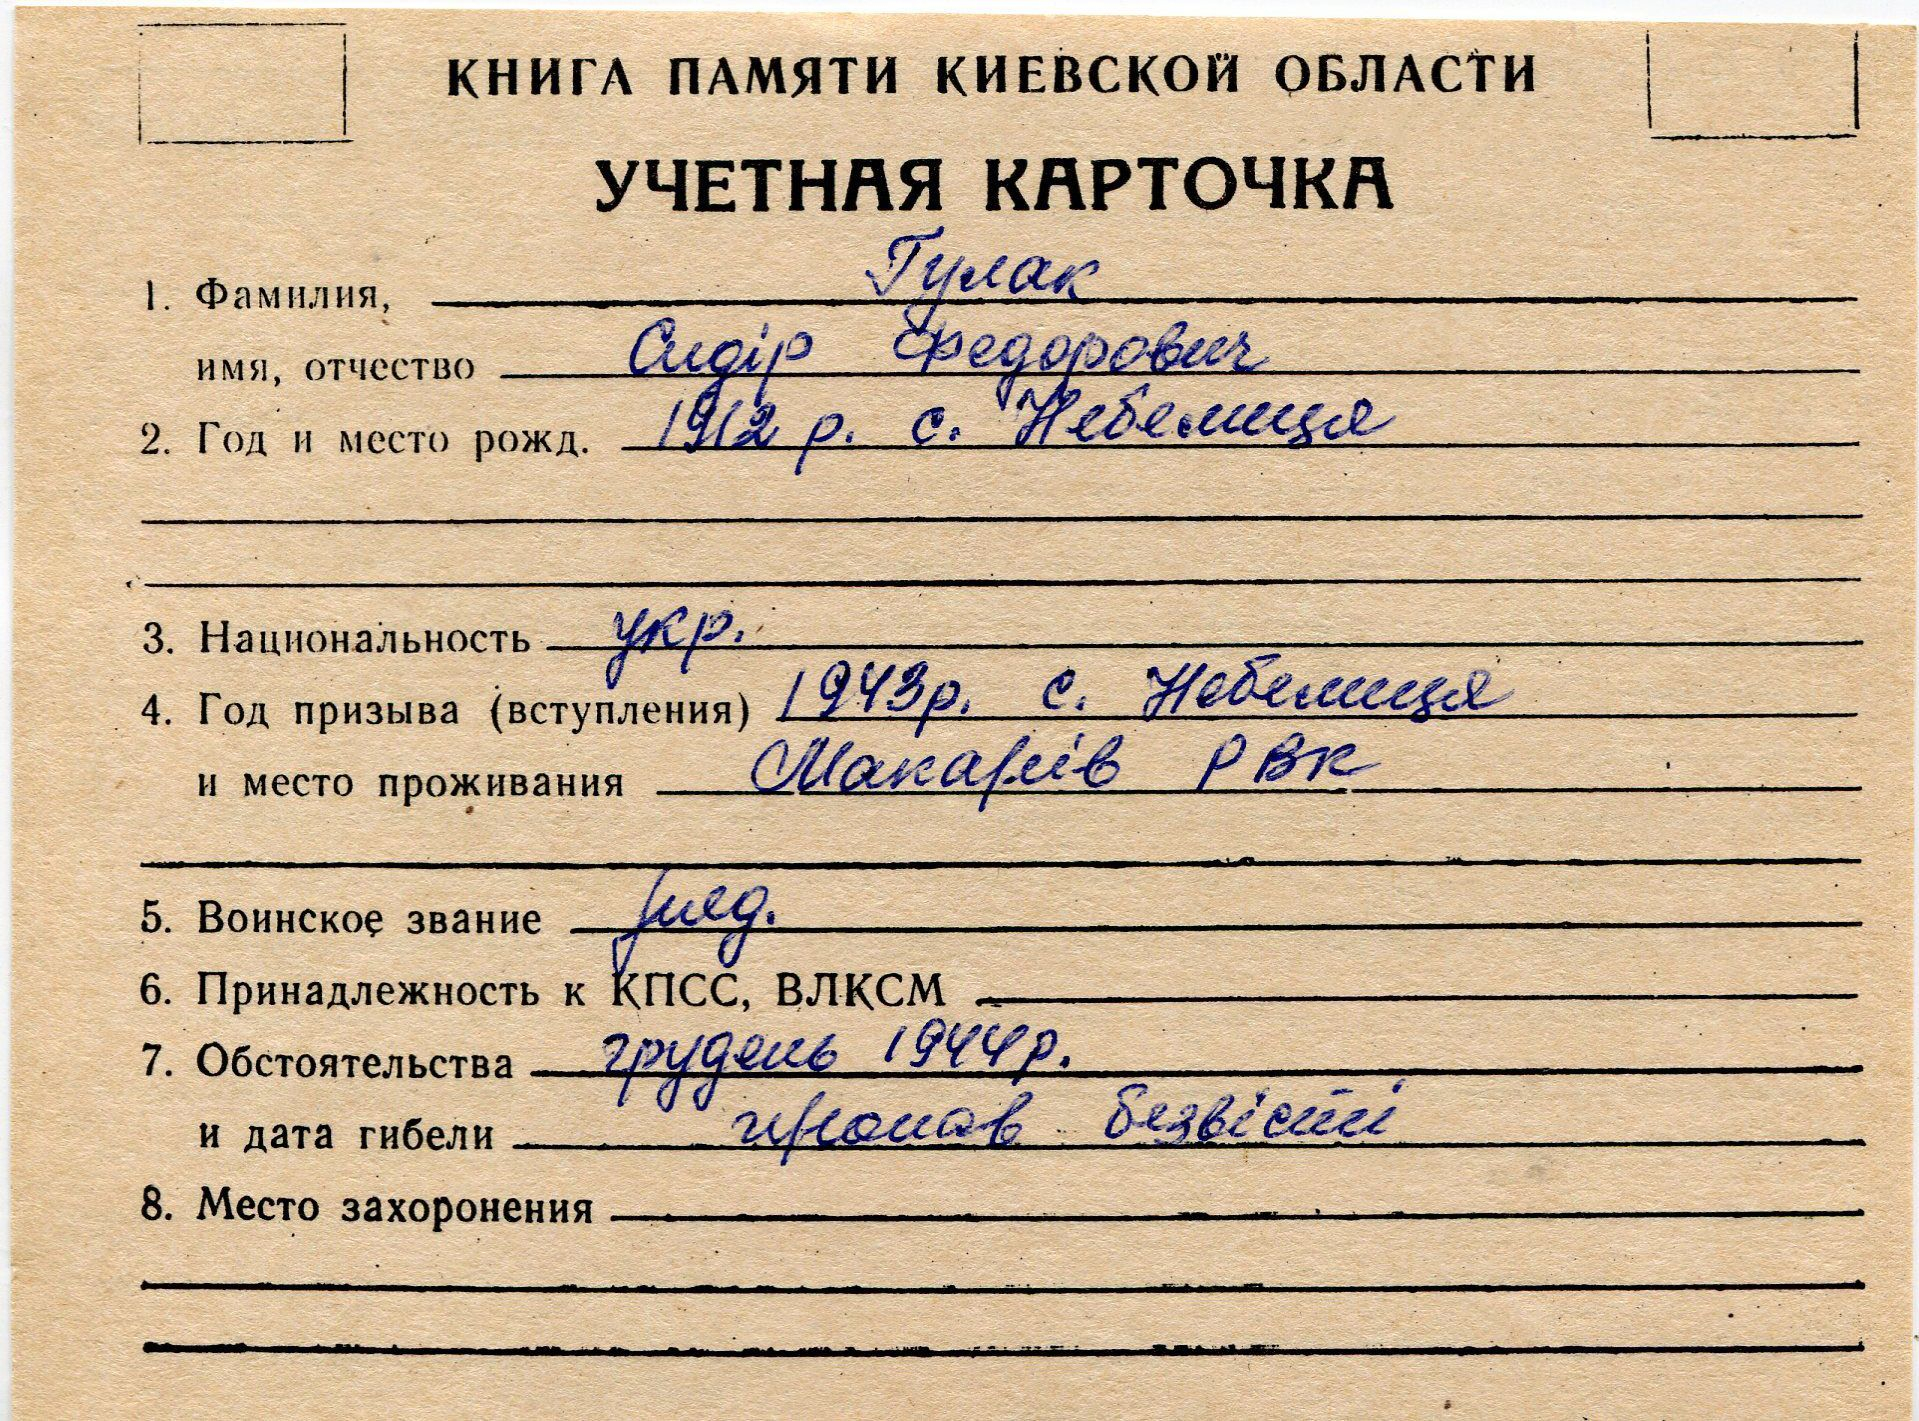 КНИГА ПАМЯТИ КИЕВСКОЙ ОБЛАСТИ
УЧЕТНАЯ КАРТОЧКА
1. Фамилия, Гулак
имя, отчество Сидір Федорович
2. Год и место рожд. 1912 р. с. Небелиця
3. Национальность укр.
4. Год призыва (вступления) 1943р. с. Небелиця
и место проживания Макарів РВК
5. Воинское звание ряд.
6. Принадлежность к КПСС, ВЛКСМ
7. Обстоятельства грудень 1944р.
и дата гибели пропав безвісти
8. Место захоронения